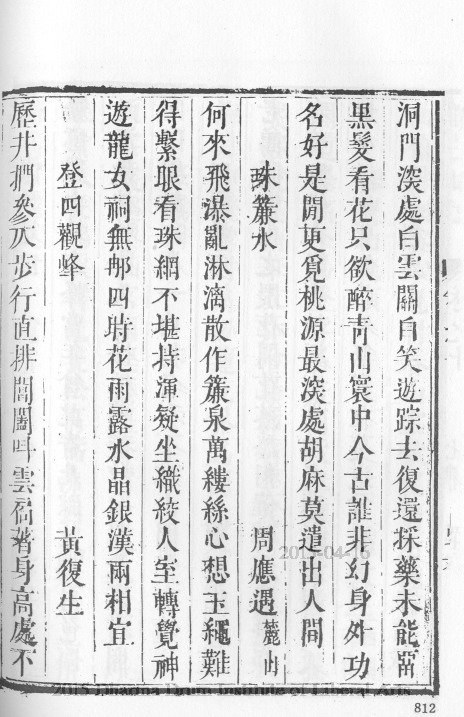 洞門深處白雲關自笑遊踪去復還採藥未能留
黑髮看花只欲醉青山寰中今古誰非幻身外功
名好是閒更覓桃源最深處胡麻莫遣出人間
珠簾水 周應遇麓山
何來飛瀑亂淋漓散作簾泉萬縷絲心想玉繩難
得繫眼看珠網不堪持渾疑坐織絞人室轉覺神
遊龍女祠無郍四時花雨露水晶銀漢兩相宜
登四觀峰 黃復生
歷井捫參天步行直排閶闔叫雲著身高處不
Dharma Drum Institute of Liberal Arts
812